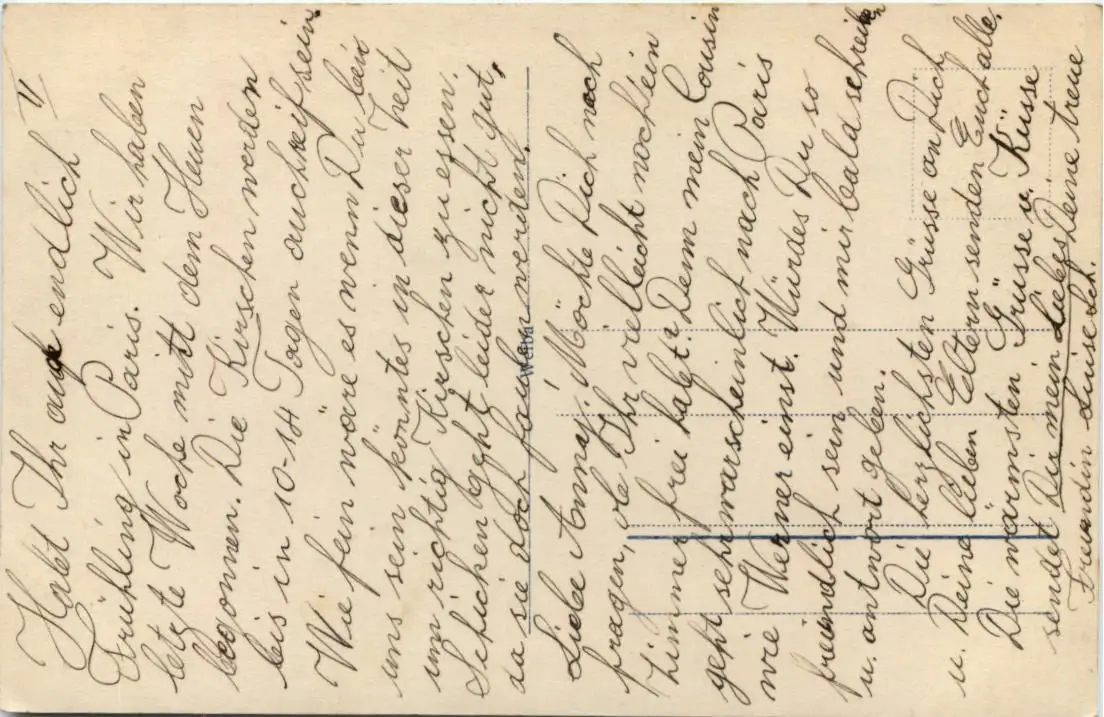 II
Habt Ihr auch endlich
Frühling in Paris. Wir haben
letzte Woche mitt dem Heuen
begonnen. Die Kirschen werden
bis in 10-14 Tagen auch reif sein.
Wie fein wäre es wenn Du bein
uns sein köntes in dieser Zeit
um richtig Kirschen zu essen.
Schicken geht leider nicht gut,
da sie doch faulen werden.
Liebe Anny! Möchte Dich noch
fragen, ob Ihr vielleicht noch ein
Zimmer frei habet? Denn mein Cousin
geht sehr warscheinlich nach Paris
wie Werner einst. Würdes Du so
freiendlich sein und mir bald schreiben
u. antwort geben.
Die herzlichsten Grüsse an Dich
u. Deine lieben Eltern senden Euch alle.
Die wärmsten Grüsse u. Küsse
sendet Dir mein Liebes Deine treue
Freundin Luise Sch.